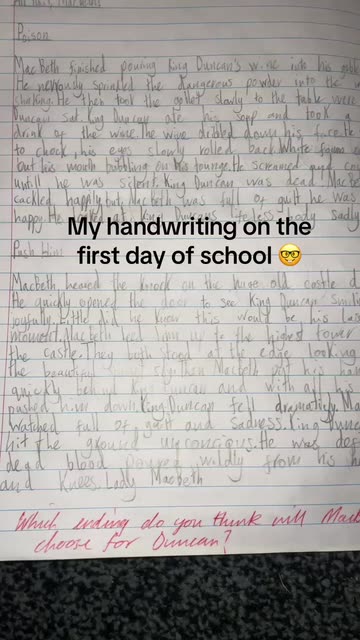 Poison
MacBeth finished pouring King Duncan's wine into his
He nervously sprinkled the dangerous powder into the
shaking. He then took the goblet slowly to the table
Duncan sat. King Duncan ate his and took a
drink of the wine. he wine dribled down his face. He
to chock, his eyes slowly rolled back. White
out his mouth bubbling on his tounge. He screamed
untill he was silent. King Duncan was dead.
cackled happily but, Macbeth was full of guilt he was
happy. He at King Duncans Lady sadly
My handwriting on the
first day of school 🤓
Push Him
Macbeth heared the knock on the huge old castle
He quickly opened the door to see King Duncan
joyfully. Little did he know this would be his last
moment. Macbeth him to the highest tower
the castle. They both stood at the edge looking
the beautiful Macbeth put his
quickly behind King Duncan and with all his
pushed him down. King Duncan fell dramaticly.
watched full of guilt and sadness. King
hit the ground unconcious. He was
dead blood poured wildly from his
and Knees. Lady Macbeth
Which ending do you think will
choose for Duncan?